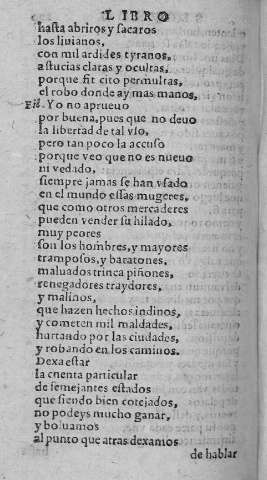 LIBRO
hasta abriros y sacaros
los liuianos,
con mil ardides tyranos,
astucias claras y ocultas,
porque fit cito per multas,
el robo donde ay mas manos,
Fil. Yo no aprueuo
por buena, pues que no deuo
la libertad de tal vso,
pero tan poco la accuso
porque veo que no es nueuo
ni vedado,
siempre jamas se han vsado
en el mundo essas mugeres,
que como otros mercaderes
pueden vender su hilado,
muy peores
son los hombres, y mayores
tramposos, y baratones,
maluados trinca piñones,
renegadores traydores,
y malinos,
que hazen hechos indinos,
y cometen mil maldades,
hurtando por las ciudades,
y robando en los caminos.
Dexa estar
la cuenta particular
de semejantes estados
que siendo bien cotejados,
no podeys mucho ganar,
y boluamos
al punto que atras dexamos
de hablar